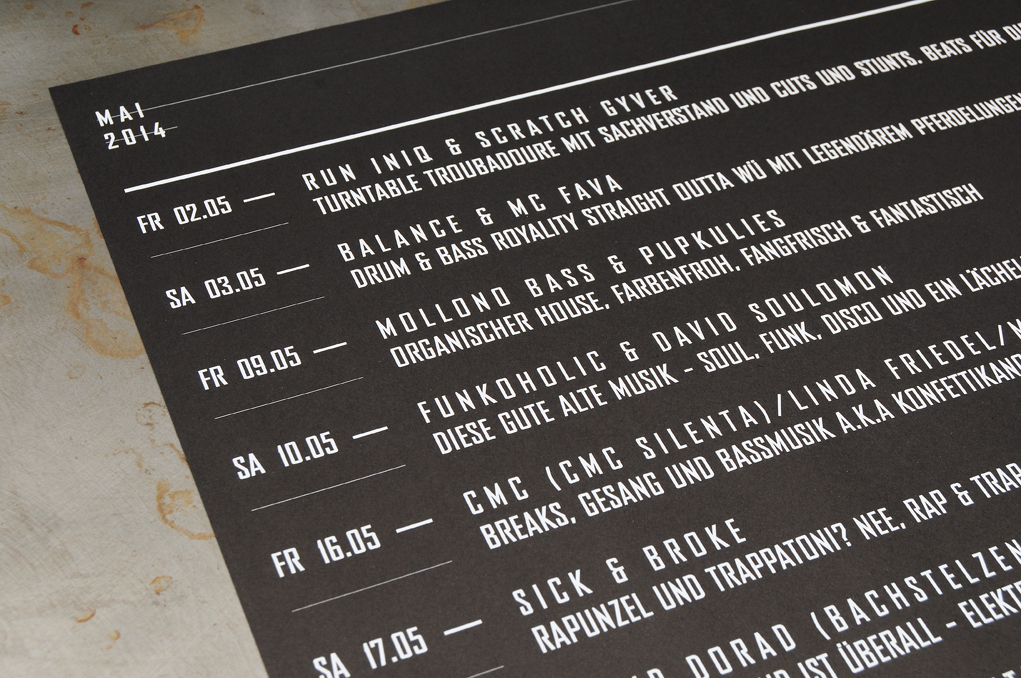 MAI
2014
FR 02.05 — RUN INIQ & SCRATCH GYVER
TURNTABLE TROUBADOURE MIT SACHVERSTAND UND CUTS UND STUNTS. BEATS FÜR
SA 03.05 — BALANCE & MC FAVA
DRUM & BASS ROYALITY STRAIGHT OUTTA WÜ MIT LEGENDÄREM
FR 09.05 — MOLLONO BASS & PUPKULIES
ORGANISCHER HOUSE, FARBENFROH, FANGFRISCH & FANTASTISCH
SA 10.05 — FUNKOHOLIC & DAVID SOULOMON
DIESE GUTE ALTE MUSIK - SOUL, FUNK, DISCO UND EIN
FR 16.05 — CMC (CMC SILENTA)/LINDA FRIEDEL/
BREAKS, GESANG UND BASSMUSIK A.K.A
SA 17.05 — SICK & BROKE
RAPUNZEL UND TRAPPATONI? NEE, RAP & TRAP
DORAD (BACHSTELZEN
IST ÜBERALL -